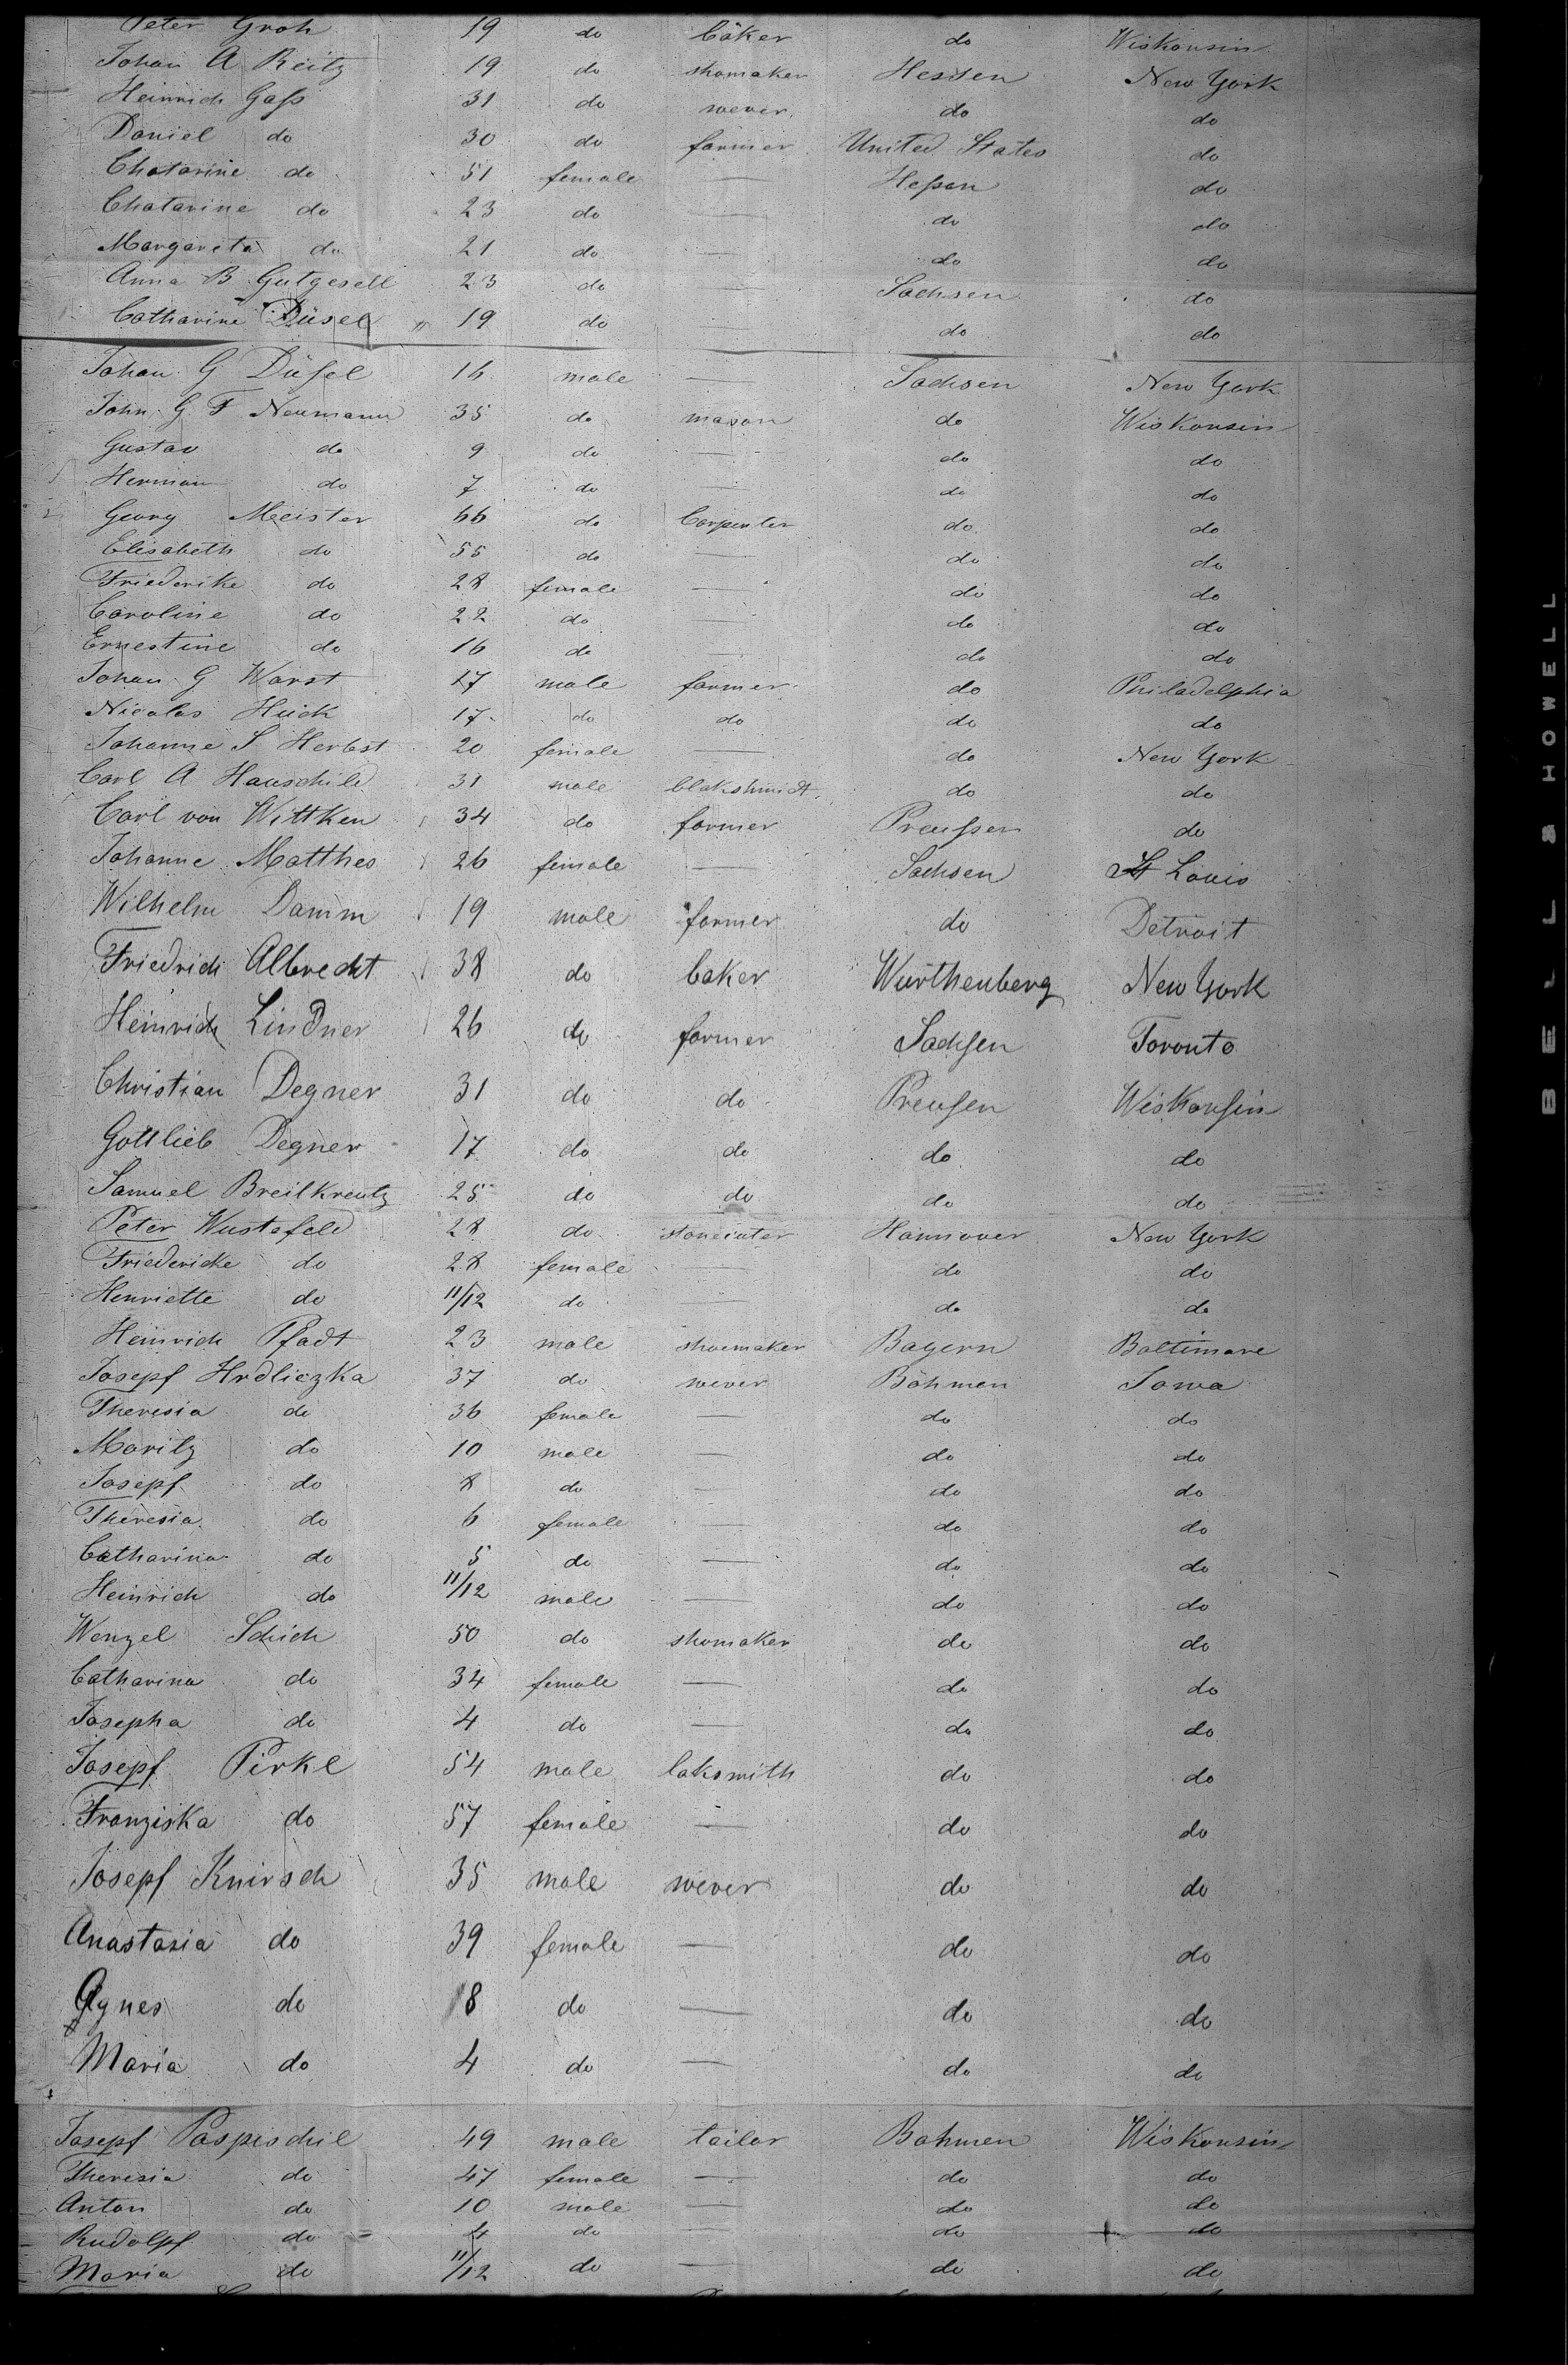 Peter Groh 19 do bäker do Wiskonsin
Johan A Reitz 19 do shomaker Hessen New York
Heinrich Gaß 31 do wever do do
Daniel do 30 do farmer United States do
Chatarine do 51 female — Heßen do
Chatarine do 23 do — do do
Margareta do 21 do — do do
Anna B Gutgesell 23 do — Sachsen do
Catharine Düsel 19 do do do
Johan G Düsel 16 male — Sachsen New York
John G F Neumann 35 do mason do Wiskonsin
Gustav do 9 do — do do
Herman do 7 do — do do
Georg Meister 66 do Carpenter do do
Elisabeth do 55 do — do do
Friederike do 28 female — do do
Caroline do 22 do — do do
Ernestine do 16 do — do do
Johan G Warst 17 male farmer do Philadelphia
Nicolas Huck 17 do do do do
Johanne S Herbst 20 female — do New York
Carl A Hauschild 31 male blakshmidt do do
Carl von Wittken 34 do farmer Preußen do
Johanne Matthes 26 female — Sachsen St Louis
Wilhelm Damm 19 male farmer do Detroit
Friedrich Albrecht 38 do baker Würthenberg New York
Heinrich Lindner 26 do farmer Sachsen Toronto
Christian Degner 31 do do Preusen Wiskonsin
Gottlieb Degner 17 do do do do
Samuel Breitkreutz 25 do do do do
Peter Wustefeld 28 do stonecuter Hannover New York
Friedericke do 28 female — do do
Henriette do 11/12 do — do do
Heinrich Pfadt 23 male shoemaker Bayern Baltimore
Josepf Hrdliczka 37 do wever Böhmen Iowa
Theresia do 36 female — do do
Moritz do 10 male — do do
Josepf do 8 do — do do
Theresia do 6 female — do do
Catharina do 5 do — do do
Heinrich do 11/12 male — do do
Wenzel Schich 50 do shomaker do do
Catharina do 34 female — do do
Josepha do 4 do — do do
Josepf Pirkl 54 male loksmith do do
Franziska do 57 female — do do
Josepf Knirsch 35 male wever do do
Anastasia do 39 female — do do
Agnes do 8 do — do do
Maria do 4 do — do do
Josepf Paspischil 49 male tailor Bohmen Wiskonsin
Theresia do 47 female — do do
Anton do 10 male — do do
Rudolpf do 4 do — do do
Maria do 11/12 do — do do
BELL & HOWELL